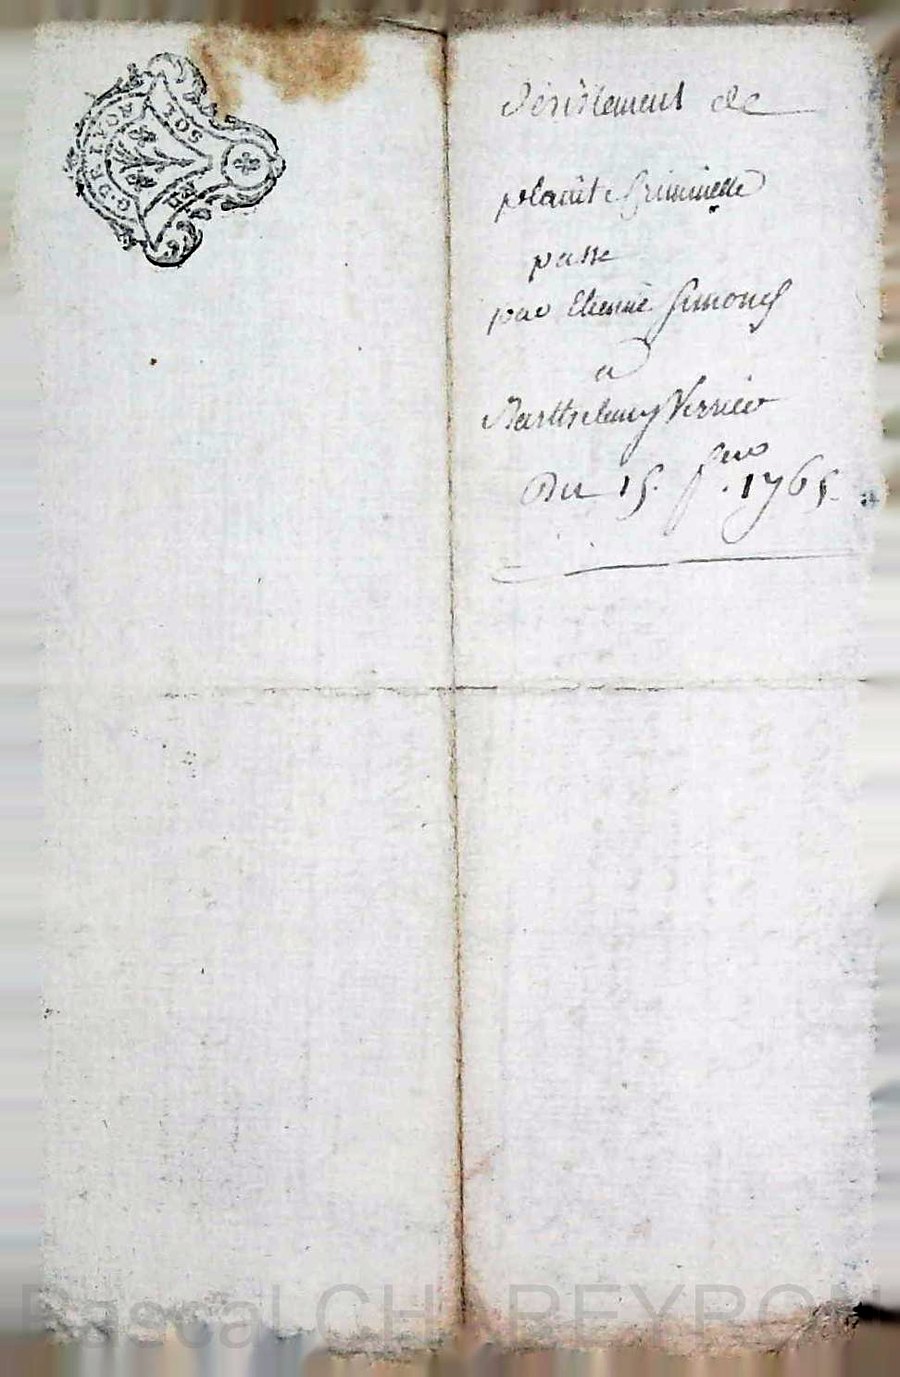 G. DE LYON
SOL
Desistement de
plainte Criminelle
passe
par Etienne Simond
a
Barthelemy Verrier
Du 15. 1765.
Pascal CHAREYRON